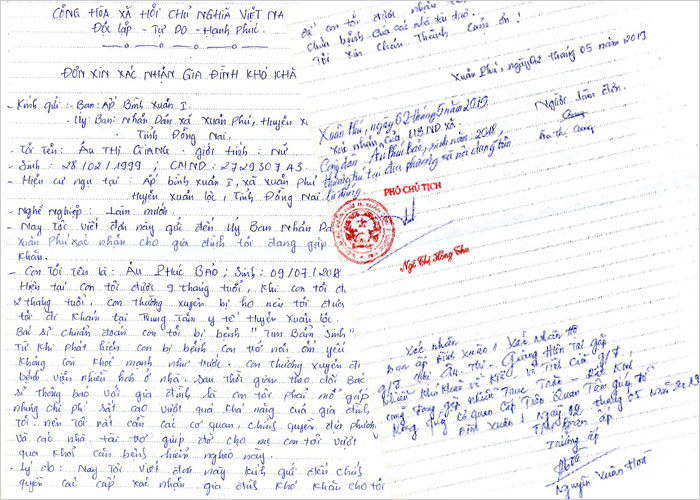 CỘNG HÒA XÃ HỘI CHỦ NGHĨA VIỆT NA
Độc lập - Tự Do - Hạnh Phúc
ĐƠN XIN XÁC NHẬN GIA ĐÌNH KHÓ KHĂ
- Kính gửi : - Ban : Ấp Bình Xuân I.
- Ủy : Ban : Nhân Dân xã Xuân Phú, Huyện X
- Tỉnh Đồng Nai.
- Tôi Tên : ÂU THỊ GIANG - giới tính : NỮ
- Sinh : 28 / 02 / 1999 ; CMND : 272930743.
- Hiện cư ngụ tại : Ấp bình xuân I, xã xuân Phú
Huyện xuân lộc, Tỉnh Đồng Nai.
- Nghề Nghiệp : Làm mướn
- Nay Tôi viết đơn này gửi đến Ủy Ban Nhân Dâ
xuân Phú xác nhận cho gia đình tôi đang gặp
khăn.
- Con Tôi Tên là : Âu Phúc BẢO ; Sinh : 09 / 07 / 2018
Hiện tại con tôi được 9 tháng tuổi, khi con tôi đ
2 tháng tuổi. con thường xuyên bị ho nên tôi đưa
tôi đi khám tại Trung Tâm y tế Huyện Xuân lộc.
Bác sĩ chuẩn đoán con tôi bị bệnh " Tim Bẩm Sinh"
Từ khi phát hiện con bị bệnh con trở nên ốm yếu
không còn khỏe mạnh như trước. con thường xuyên đi
bệnh viện nhiều hơn ở nhà. sau thời gian theo dõi Bác
sĩ thông báo với gia đình là con tôi phải mổ gấp
nhưng chi phí rất cao vượt quá khả năng của gia đình
tôi. nên Tôi rất cần các cơ quan, chính quyền địa phươn
và các nhà tài trợ giúp đỡ cho mẹ con tôi vượt
qua khỏi căn bệnh hiểm nghèo này.
- Lý do : Nay Tôi viết đơn này kính gửi đến chính
quyền các cấp xác nhận gia đình khó khăn cho tôi
để con tôi được nhận
chữa bệnh của các nhà tài trợ.
Tôi xin chân Thành cảm ơn !
Xuân Phú, ngày 02 tháng 05 năm 2019
Người làm đơn.
Giang
Âu thị Giang
Xuân Phú, ngày 02 tháng 5 năm 2019
Xác nhận của UBND xã
Công dân : Âu Phúc Bảo, sinh năm 2018
thường trú tại địa phương và nội dung trên
là đúng
PHÓ CHỦ TỊCH
Ngô Thị Hồng Thu
Xác nhận
Ban ấp Bình xuân 1 Xác nhận hộ
g/đ Chị Âu Thị - Giang Hiện Tại gặp
Nhiều Khó khăn về
Mong Quý Cơ quan Cấp Trên Quan Tâm giúp đỡ
Bình Xuân 1 Ngày 02 tháng 05 Năm 2019
TM Ban ấp
Trưởng ấp
Nguyễn Xuân Hoà